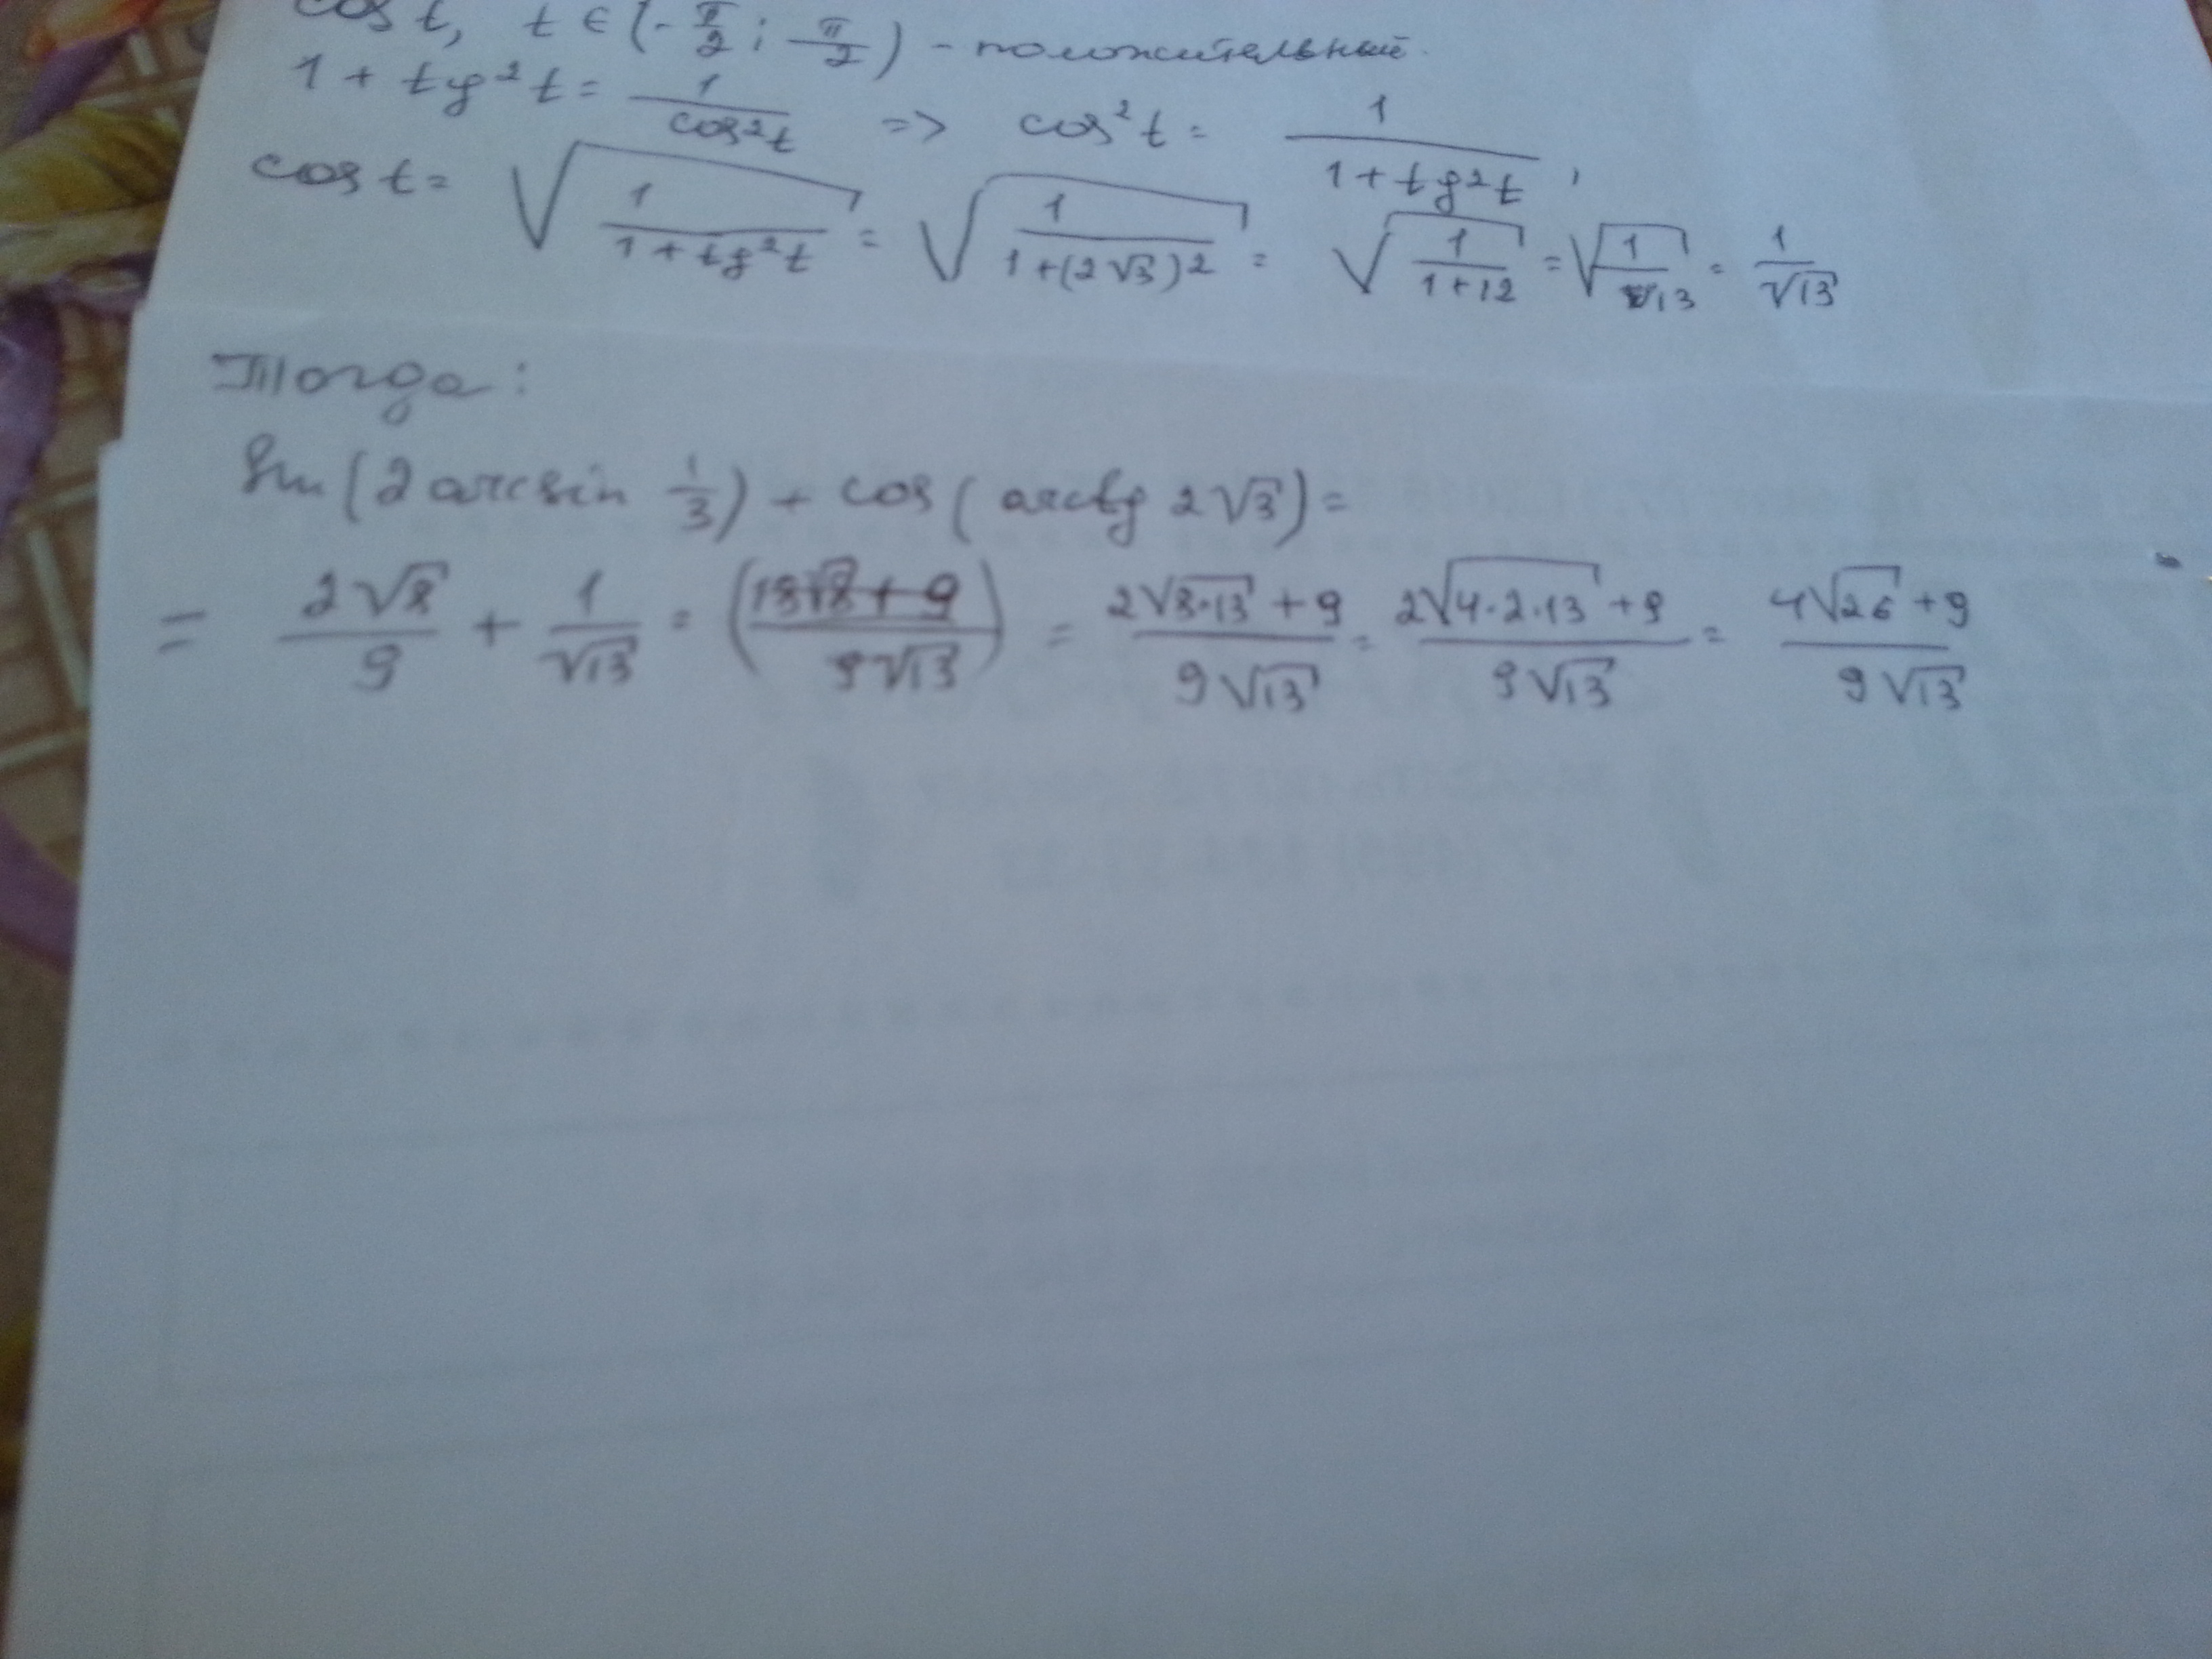 cos t, t ∈ (-π/2; π/2) - положительный.
1 + tg²t = 1/cos²t => cos²t = 1/(1+tg²t),
cos t = √(1/(1+tg²t)) = √(1/(1+(2√3)²)) = √(1/(1+12)) = √(1/13) = 1/√13
Тогда:
Sin(2 arcsin 1/3) + cos(arctg 2√3) =
= 2√8/9 + 1/√13 = ((18√8+9)/(9√13)) = (2√(8·13)+9)/(9√13) = (2√(4·2·13)+9)/(9√13) = (4√26+9)/(9√13)